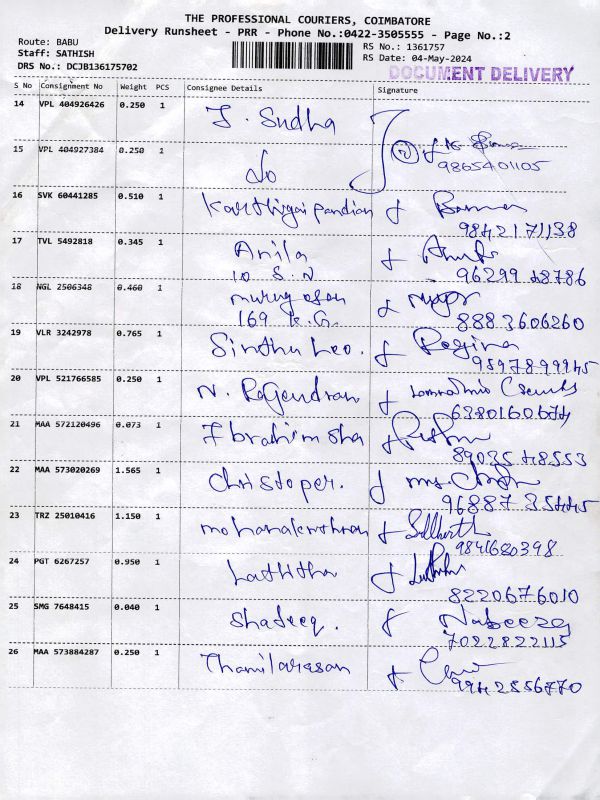 THE PROFESSIONAL COURIERS, COIMBATORE
Delivery Runsheet - PRR - Phone No.:0422-3505555 - Page No.:2
Route: BABU
Staff: SATHISH
DRS No.: DCJB136175702
RS No.: 1361757
RS Date: 04-May-2024
DOCUMENT DELIVERY
S No Consignment No Weight PCS Consignee Details Signature
14 VPL 404926426 0.250 1 J. Sudha
15 VPL 404927384 0.250 1 Do 9865401105
16 SVK 60441285 0.510 1 Karthigai pandian
9842171138
17 TVL 5492818 0.345 1 Anila
10 S.N 96299 48786
18 NGL 2506348 0.460 1 murugesan
169 K.G. 888 3606260
19 VLR 3242978 0.765 1 Sindhu Leo. Regina
9597899945
20 VPL 521766585 0.250 1 N. Rajendran
6380160674
21 MAA 572120496 0.073 1 Ibrahim sha
89035 48553
22 MAA 573020269 1.565 1 Christoper.
96887 35445
23 TRZ 25010416 1.150 1 mohanakrithran Siddharth
9841680398
24 PGT 6267257 0.950 1 Lathitha
8220676010
25 SMG 7648415 0.040 1 Shadeeq. Nabeeza
7022822115
26 MAA 573884287 0.250 1 Thamilarasan
9942556770